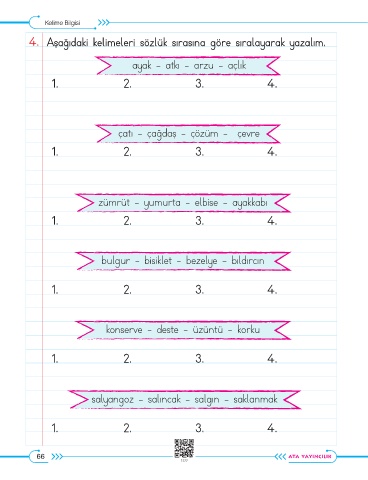 Kelime Bilgisi
4. Aşağıdaki kelimeleri sözlük sırasına göre sıralayarak yazalım.
ayak - atkı - arzu - açlık
1. 2. 3. 4.
çatı - çağdaş - çözüm - çevre
1. 2. 3. 4.
zümrüt - yumurta - elbise - ayakkabı
1. 2. 3. 4.
bulgur - bisiklet - bezelye - bıldırcın
1. 2. 3. 4.
konserve - deste - üzüntü - korku
1. 2. 3. 4.
salyangoz - salıncak - salgın - saklanmak
1. 2. 3. 4.
66
ATA YAYINCILIK